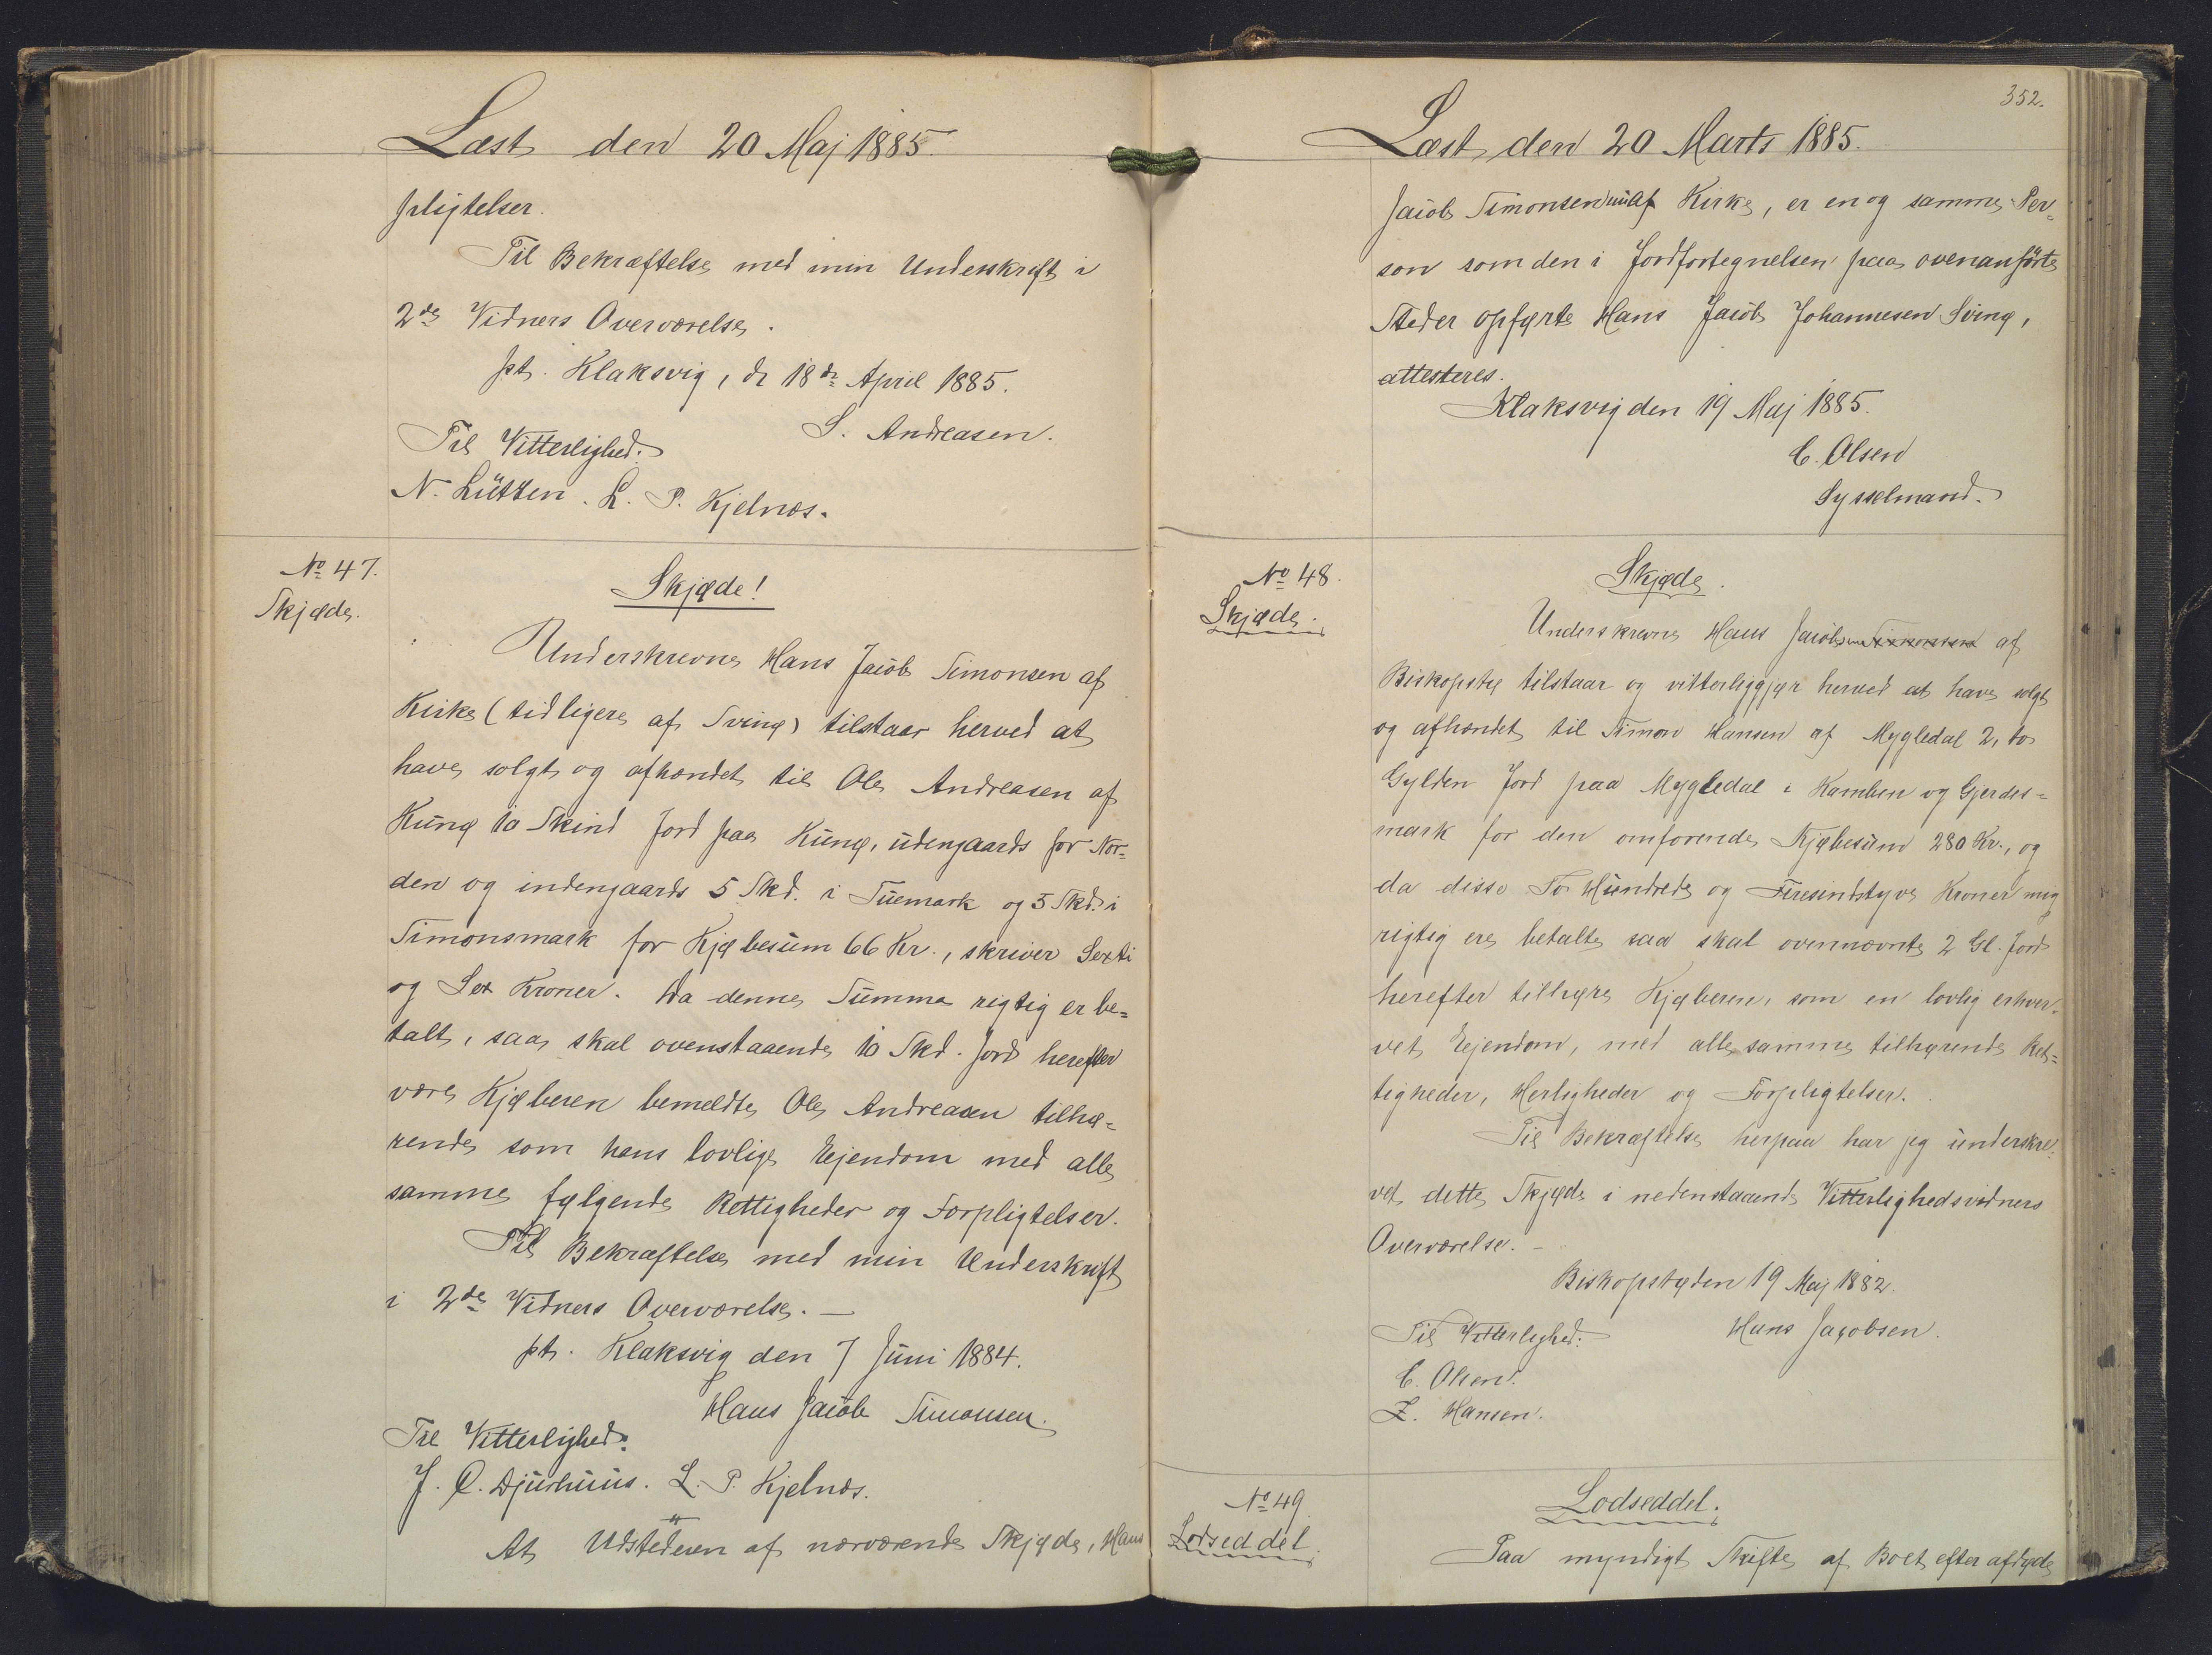 Læst den 20 Maj 1885.
pligtelser.
Til Bekræftelse med min Underskrift i
2de Vidners Overværelse.
pt. Klaksvig, d. 18de April 1885.
S. Andreasen.
Til Vitterlighed:
N. Lützen. L. P. Kjelnæs.
No 47.
Skjøde.
Skjøde!
Underskrevne Hans Jacob Simonsen af
Kirke (tidligere af Svinø) tilstaar herved at
have solgt og afhændet til Ole Andreasen af
Kunø 10 Skind Jord paa Kunø, udengaards for Nor-
den og indengaards 5 Skd. i Tuemark og 5 Skd. i
Simonsmark for Kjøbesum 66 Kr., skriver Sexti
og Sex Kroner. Da denne Summa rigtig er be-
talt, saa skal ovenstaaende 10 Skd. Jord herefter
være Kjøberen bemeldte Ole Andreasen tilhø-
rende som hans lovlige Ejendom med alle
samme følgende Rettigheder og Forpligtelser.
Til Bekræftelse med min Underskrift
i 2de Vidners Overværelse. —
pt. Klaksvig den 7 Juni 1884.
Hans Jacob Simonsen.
Til Vitterlighed:
J. C. Djurhuus. L. P. Kjelnæs.
At Udstederen af nærværende Skjøde, Hans
352.
Læst den 20 Marts 1885.
Jacob Simonsen nu af Kirke, er en og samme Per-
son som den i Jordfortegnelsen paa ovenanførte
Steder opførte Hans Jacob Johannesen Svinø,
attesteres.
Klaksvig den 19 Maj 1885.
C. Olsen
Sysselmand.
No 48.
Skjøde.
Skjøde.
Underskrevne Hans Jacobsen Simonsen af
Biskopstø tilstaar og vitterliggjør herved at have solgt
og afhændet til Simon Hansen af Mygledal 2, to
Gylden Jord paa Mygledal i Kamben og Gjerdes-
mark for den omforende Kjøbesum 280 Kr., og
da disse To Hundrede og Firesindstyve Kroner mig
rigtig ere betalte saa skal ovennævnte 2 Gl. Jord
herefter tilhøre Kjøberen, som en lovlig erhver-
vet Ejendom, med alle samme tilhørende Ret-
tigheder, Herligheder og Forpligtelser.
Til Bekræftelse herpaa har jeg underskre-
vet dette Skjøde i nedenstaaende Vitterlighedsvidners
Overværelse. —
Biskopstø den 19 Maj 1882.
Hans Jacobsen.
Til Vitterlighed:
C. Olsen.
Z. Hansen.
No 49
Lodseddel.
Lodseddel.
Paa myndigt Skifte af Boet efter afdøde